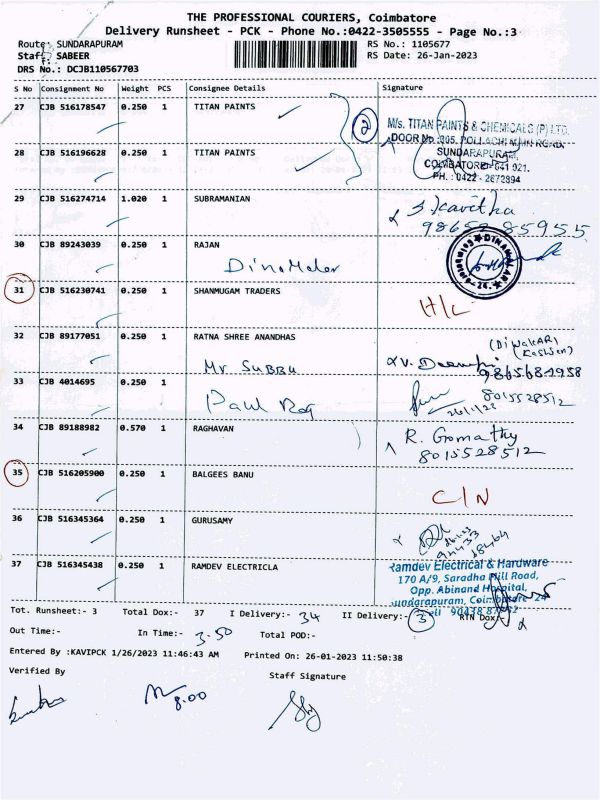 THE PROFESSIONAL COURIERS, Coimbatore
Delivery Runsheet - PCK - Phone No.:0422-3505555 - Page No.:3
Route: SUNDARAPURAM
RS No.: 1105677
Staff: SABEER
RS Date: 26-Jan-2023
DRS No.: DCJB110567703
S No Consignment No Weight PCS Consignee Details Signature
27 CJB 516178547 0.250 1 TITAN PAINTS
2
M/s. TITAN PAINTS & CHEMICALS (P) LTD.
DOOR No :395, POLLACHI MAIN ROAD,
SUNDARAPURAM,
COIMBATORE- 641 021.
PH. : 0422 - 2672894
28 CJB 516196628 0.250 1 TITAN PAINTS
29 CJB 516274714 1.020 1 SUBRAMANIAN
S. Kavitha
98659 85955
30 CJB 89243039 0.250 1 RAJAN
Dinamalar
DINAMALAR
31 CJB 516230741 0.250 1 SHANMUGAM TRADERS
H/L
32 CJB 89177051 0.250 1 RATNA SHREE ANANDHAS
Mr. SUBBU
(DIWAKAR)
9865682958
33 CJB 4014695 0.250 1
Paul Raj
8015528512
34 CJB 89188982 0.570 1 RAGHAVAN
R. Gomathy
8015528512
35 CJB 516205900 0.250 1 BALGEES BANU
C/N
36 CJB 516345364 0.250 1 GURUSAMY
37 CJB 516345438 0.250 1 RAMDEV ELECTRICLA
Ramdev Electrical & Hardware
170 A/9, Saradha Mill Road,
Opp. Abinand Hospital,
Sundarapuram, Coimbatore - 24
Cell 90438
Tot. Runsheet:- 3 Total Dox:- 37 I Delivery:- 34 II Delivery:- 3 RTN Dox:-
Out Time:- In Time:- 3.50 Total POD:-
Entered By :KAVIPCK 1/26/2023 11:46:43 AM Printed On: 26-01-2023 11:50:38
Verified By Staff Signature
8.00